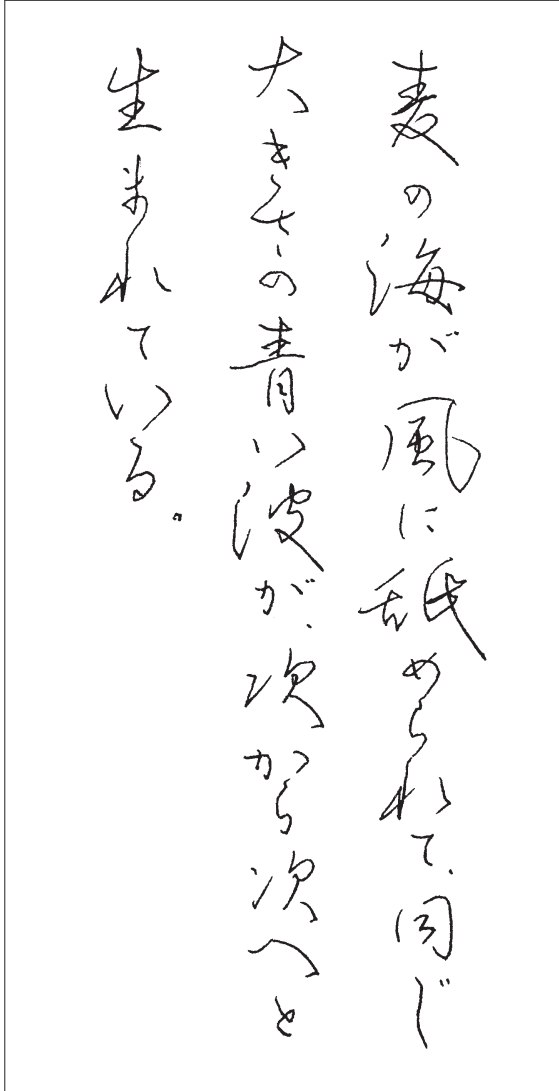 麦の海が風に舐められて、同じ
大きさの青い波が、次から次へと
生まれている。